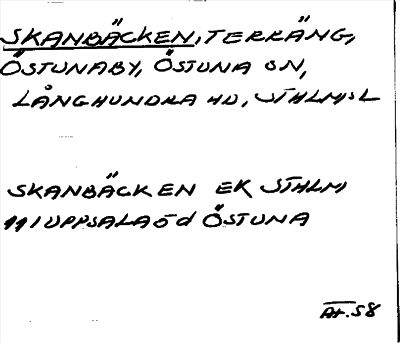 SKANBÄCKEN, TERRÄNG,
ÖSTUNABY, ÖSTUNA SN,
LÅNGHUNDRA HD, STHLMS L
SKANBÄCKEN EK STHLM
111 UPPSALA ö d ÖSTUNA
At. 58